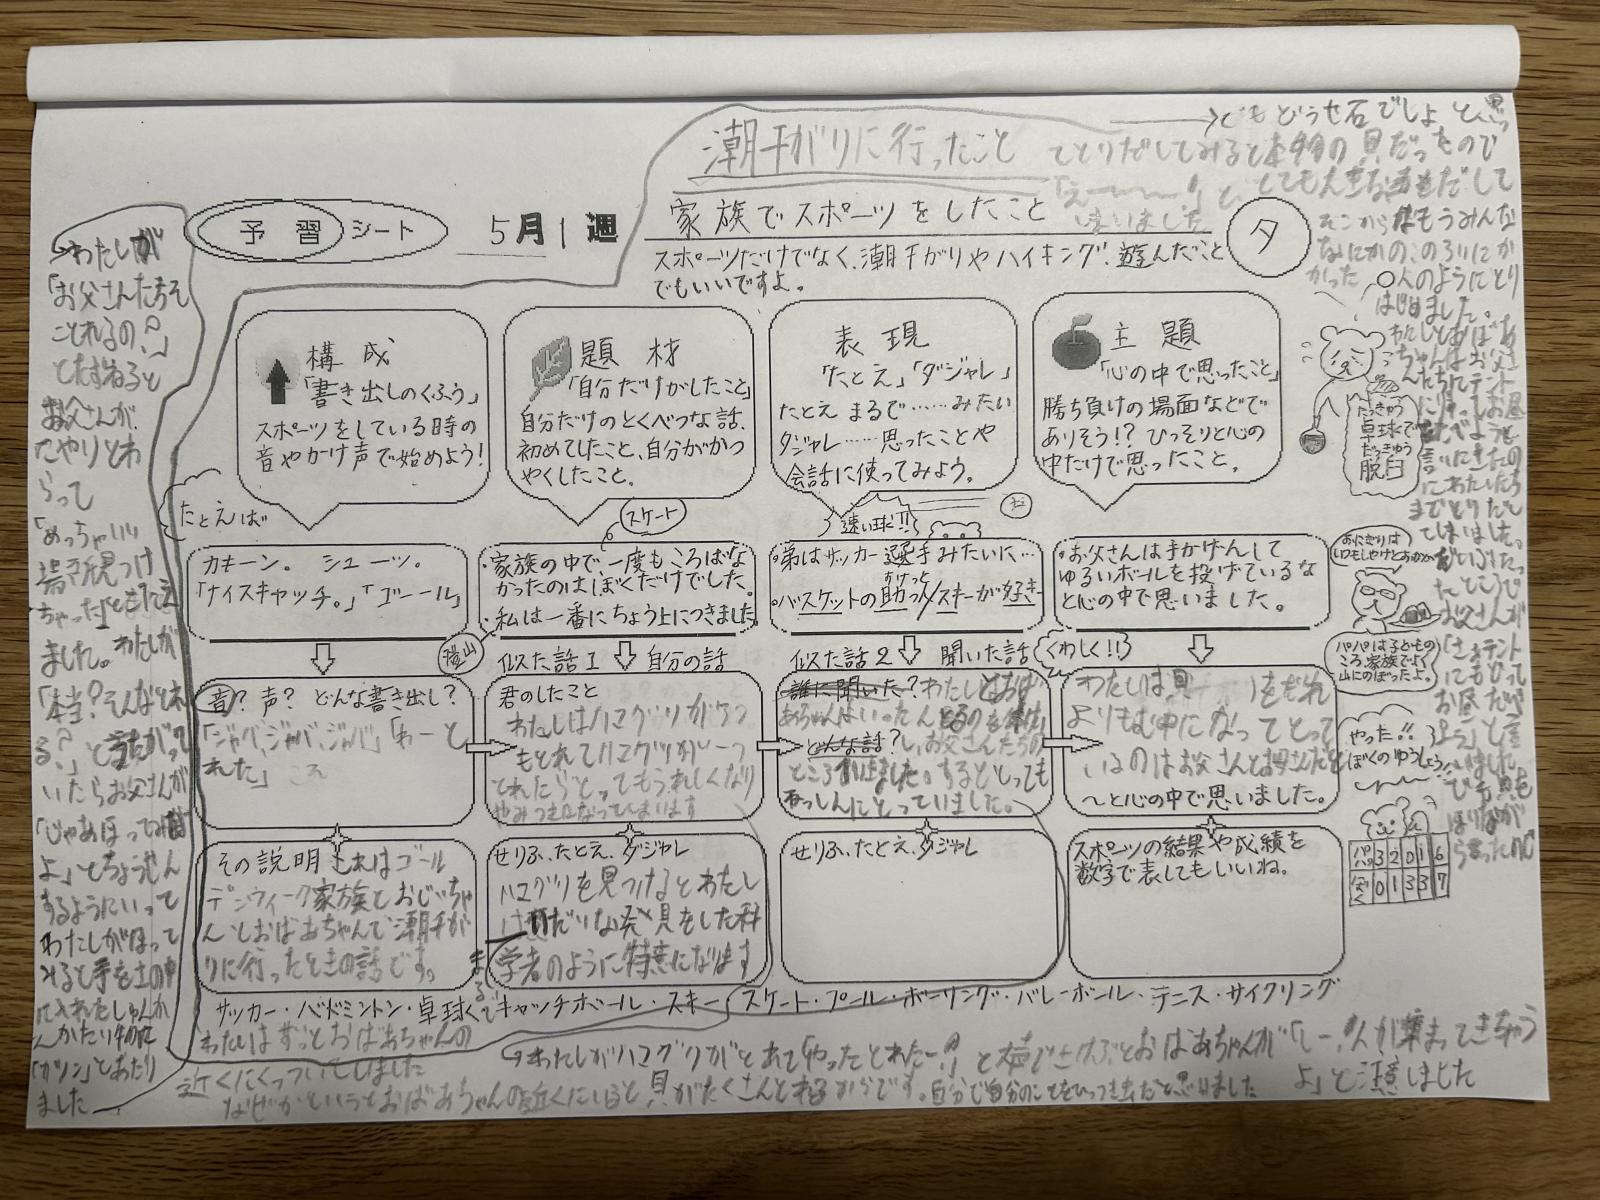 潮干がりに行ったこと
予習シート
5月1週
家族でスポーツをしたこと
スポーツだけでなく、潮干がりやハイキング、遊んだこと
でもいいですよ。
タ
構成
「書き出しのくふう」
スポーツをしている時の
音やかけ声で始めよう!
題材
「自分だけがしたこと」
自分だけのとくべつな話、
初めてしたこと、自分がかつ
やくしたこと。
表現
「たとえ」「ダジャレ」
たとえ まるで……みたい
ダジャレ……思ったことや
会話に使ってみよう。
主題
「心の中で思ったこと」
勝ち負けの場面などで
ありそう!? ひっそりと心の
中だけで思ったこと。
たっきゅう
卓球で
だっきゅう
脱臼
たとえば
カキーン。 シューッ。
「ナイスキャッチ。」「ゴーール」
スケート
・家族の中で一度もころばな
かったのはぼくだけでした。
・私は一番にちょう上につきました
登山
速い球!!
・弟はサッカー選手みたいに…
・バスケットの助っ人/スキーが好き
・お父さんは手かげんして
ゆるいボールを投げているな
と心の中で思いました。
おにぎりは
いつもしゃけとおかか
パパは子どもの
ころ、家族でよく
山にのぼったよ。
音? 声? どんな書き出し?
「ジャバ、ジャバ、ジャバ」「わーと
れた」
似た話1 自分の話
君のしたこと
わたしはハマグリが
とれたらとってもうれしくなり
やみつきになってしまいます
似た話2 聞いた話
誰に聞いた? わたしとおば
あちゃんはいったん
どんな話? お父さんたちの
ところ
ねっしんにとっていました。
くわしく!!
わたしは貝 をだれ
よりもむ中になってとって
いるのはお父さんとお母さんだと
~と心の中で思いました。
やった!!
ぼくのゆうしょう!
その説明 これはゴール
デンウィーク家族とおじいちゃ
んとおばあちゃんで潮干が
りに行ったときの話です。
せりふ、たとえ、ダジャレ
ハマグリを見つけるとわたし
は まるで だいな発見をした科
学者のように得意になります
せりふ、たとえ、ダジャレ
スポーツの結果や成績を
数字で表してもいいね。
パパ 3 2 0 1 6
ぼく 0 1 3 3 7
サッカー・バドミントン・卓球・キャッチボール・スキー・スケート・プール・ボーリング・バレーボール・テニス・サイクリング
わたしはずっとおばあちゃんの
近くにくっついてしました
なぜかというとおばあちゃんの近くにいると貝がたくさんとれるからです。自分で自分のことをひっつき虫だと思いました
わたしがハマグリがとれて「やったとれたー!」と大声でさけぶとおばあちゃんが「しー!人が集まってきちゃう
よ」と注意しました
わたしが
「お父さんたちそ
ことれるの?」
とたずねると
お父さんが
にやりとわ
らって
「めっちゃいい
場所見つけ
ちゃった」ともらえ
ました。わたしが
「本当?そんなとれ
る?」とうたがって
いたらお父さんが
「じゃあほってみな
よ」とちょうせん
するようにいって
わたしがほって
みると手を土の中
に入れたしゅんか
んかたい物に
「ガツン」とあたり
ました
でもどうせ石でしょと思っ
てとりだしてみると本物の貝だったので
「えーーー!」と、とても大きな声をだして
しまいました
そこからはもうみんな
なにかののろいにか
かった 人のようにとり
はじめました。
わたしとおばあ
ちゃんはお父さ
んたちにテント
に行ってお昼
をたべようと
言いにきたの
にわたしたち
までとりだし
てしまいました。
だいぶたっ
たところで
お父さんが
「さぁテント
にもどって
お昼たべ
よう」と言
いました。
でも貝を
ほりなが
ら言ったので